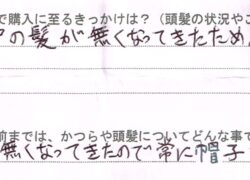 で購入に至るきっかけは？（頭髪の状況やこ
の髪が無くなってきたため
前までは、かつらや頭髪についてどんな事で
無くなってきたので常に帽子